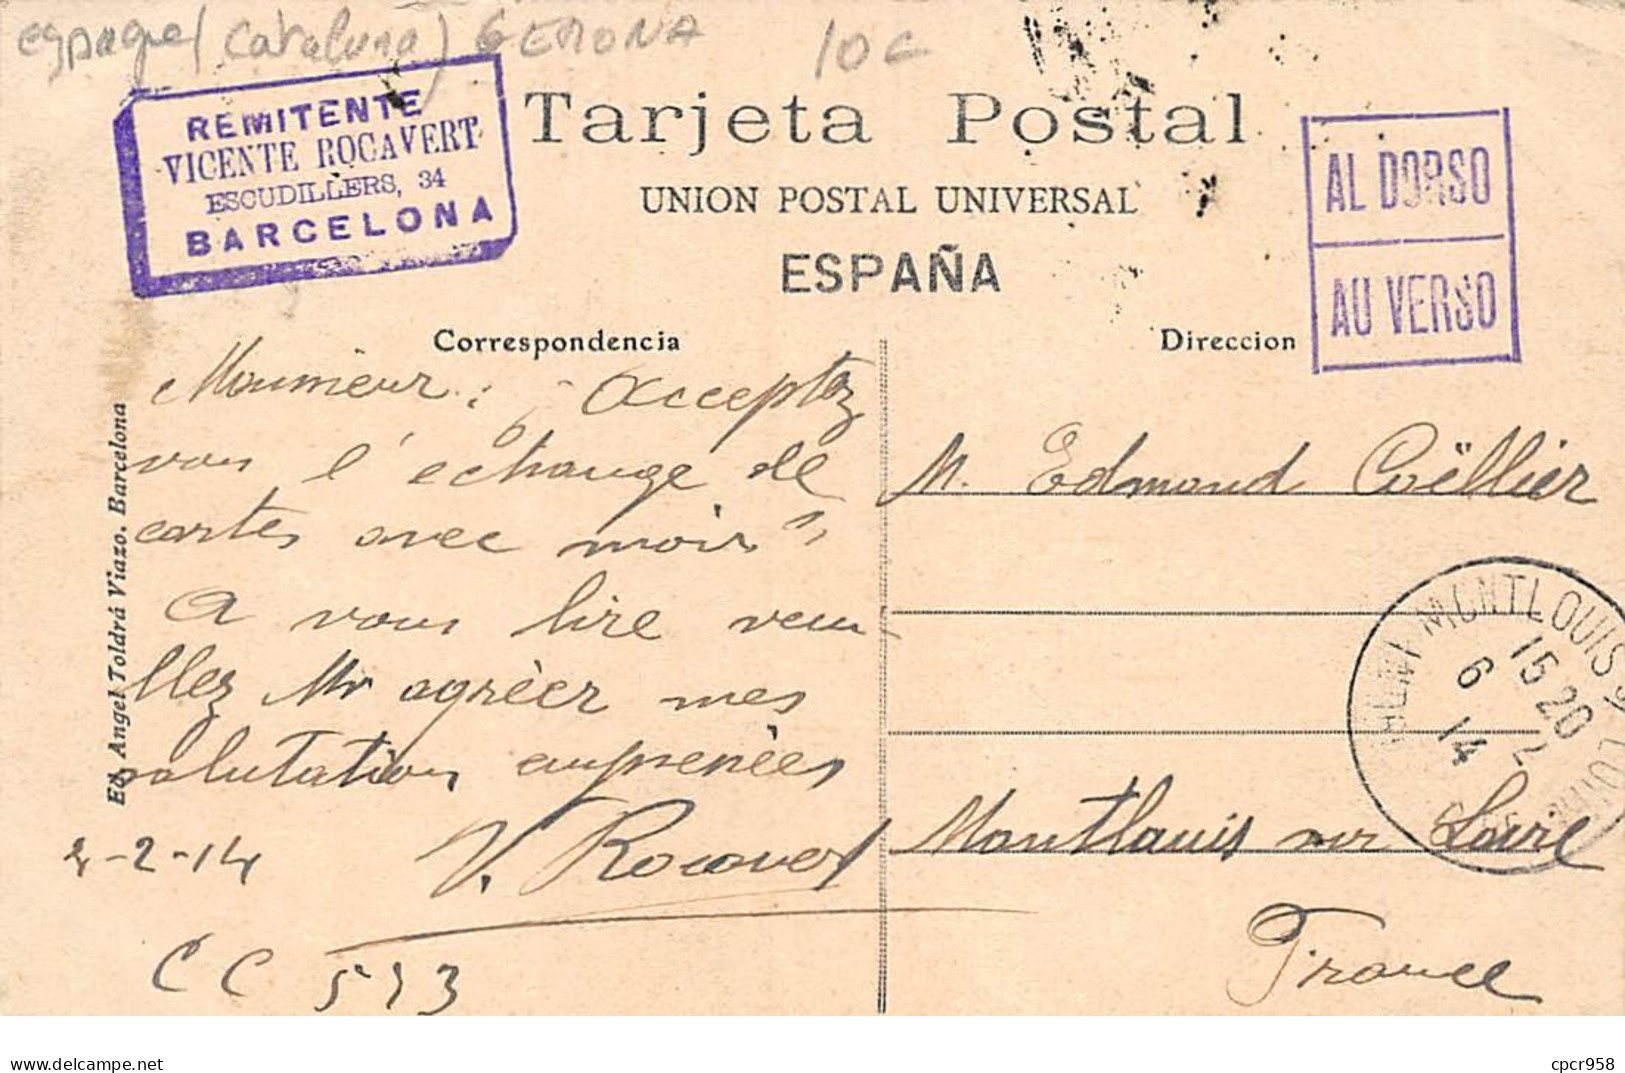 espagne (Cataluna) GERONA 10 c
REMITENTE
VICENTE ROCAVERT
ESCUDILLERS, 34
BARCELONA
Tarjeta Postal
UNION POSTAL UNIVERSAL
ESPAÑA
AL DORSO
AU VERSO
Correspondencia
Direccion
Ed. Angel Toldrá Viazo. Barcelona
Monsieur: Acceptez
vous l'échange de
cartes avec moi?
A vous lire veui-
llez Mr agréer mes
salutations empresées
V. Rocavert
2-2-14
CC 513
M. Edmond Coëllier
Montlouis sur Loire
France
MONTLOUIS S/ LOIRE
15 20
6 2
14
delcampe.net
cpcr958